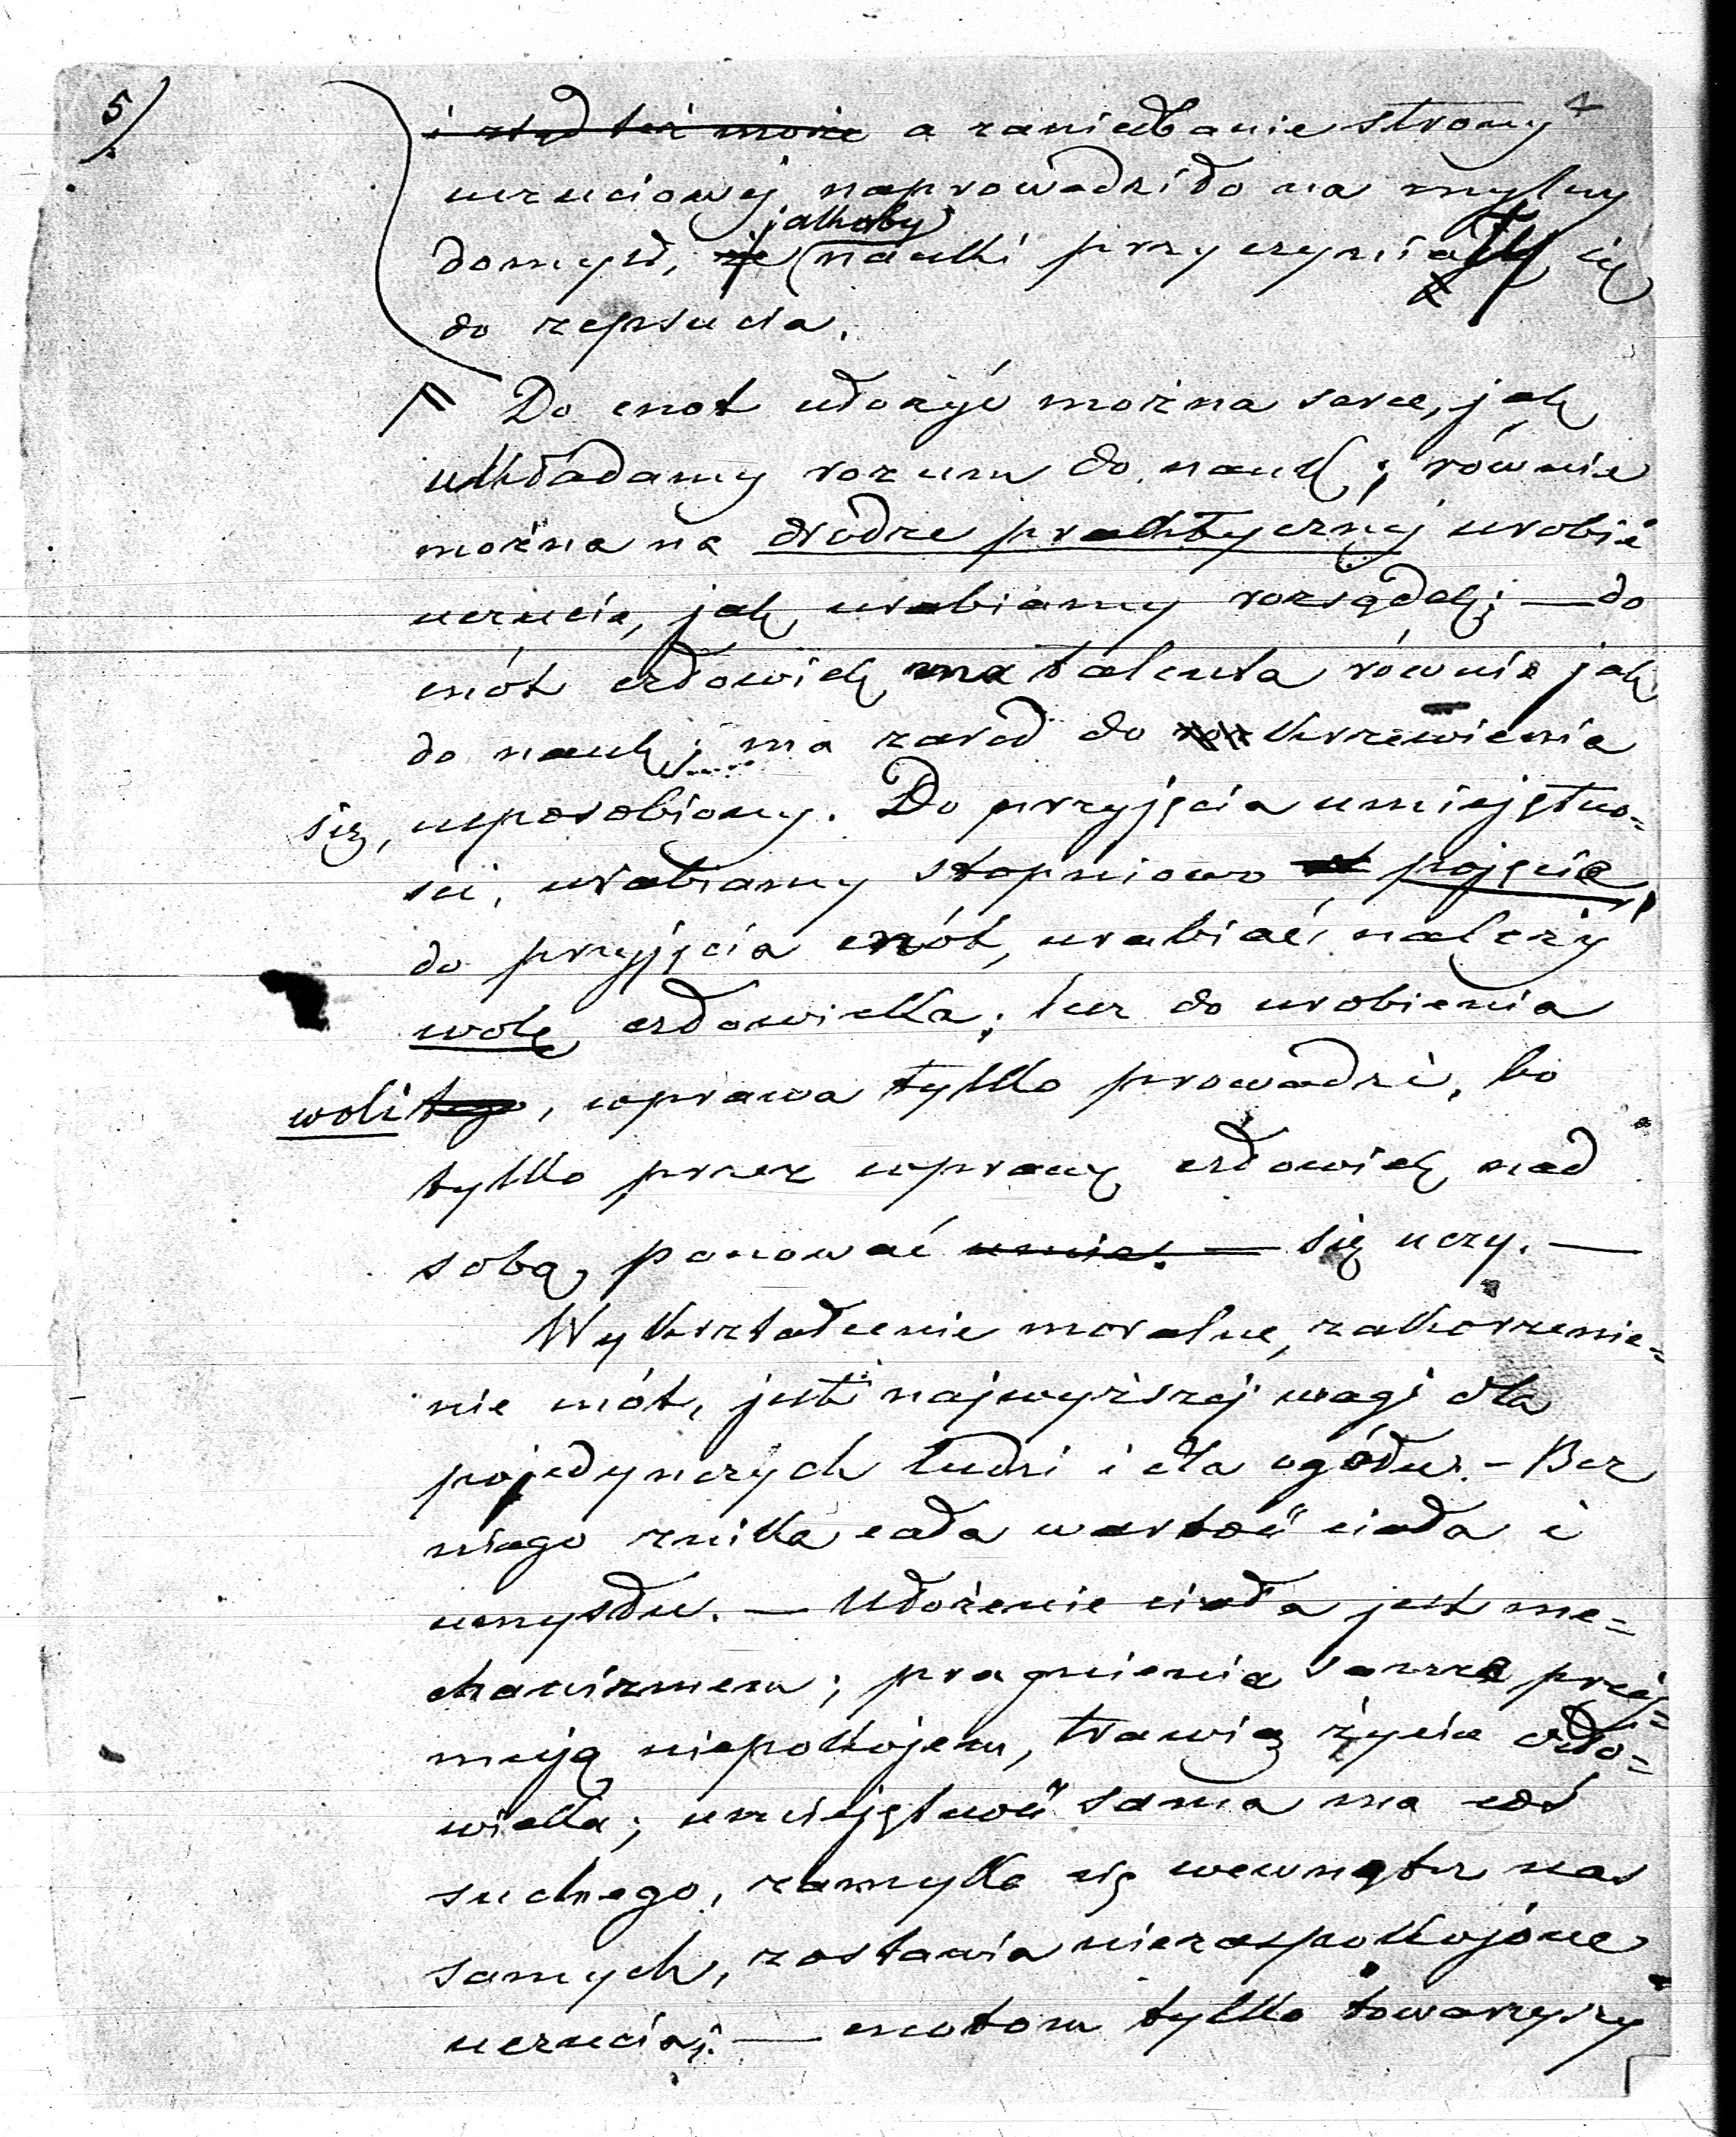 5/
i ztąd też może a zaniedbanie strony
uczuciowej naprowadziło na mylny
domysł, że jakkoby nauki przyczyniały się
do zepsucia.
Do cnot ułożyć można serce, jak
układamy rozum do nauk; równie
można na drodze praktycznej urobić
uczucie, jak urabiamy rozsądek; — do
cnót człowiek ma talenta równie jak
do nauk; ma zaród do roz krzewienia
się, usposobiony. Do przyjęcia umiejętno=
sci, urabiamy stopniowo pojęcie,
do przyjęcia cnót, urabiać należy
wolę człowieka; lecz do urobienia
woli tego, wprawa tylko prowadzi, bo
tylko przez wprawę człowiek nad
sobą panować umie. — się uczy. —
Wykształcenie moralne, zakorzenie=
nie cnót, jest najwyższej wagi dla
pojedynczych ludzi i dla ogółu. — Bez
niego znika cała wartość ciała i
umysłu. — Ułożenie ciała jest me=
chanizmem; pragnienia serca przej=
mują niepokojem, trawią życie czło=
wieka; umiejętność sama ma coś
suchego, zamyka się wewnątrz nas
samych, zostawia niezaspokojone
uczucia; — cnotom tylko towarzyszy